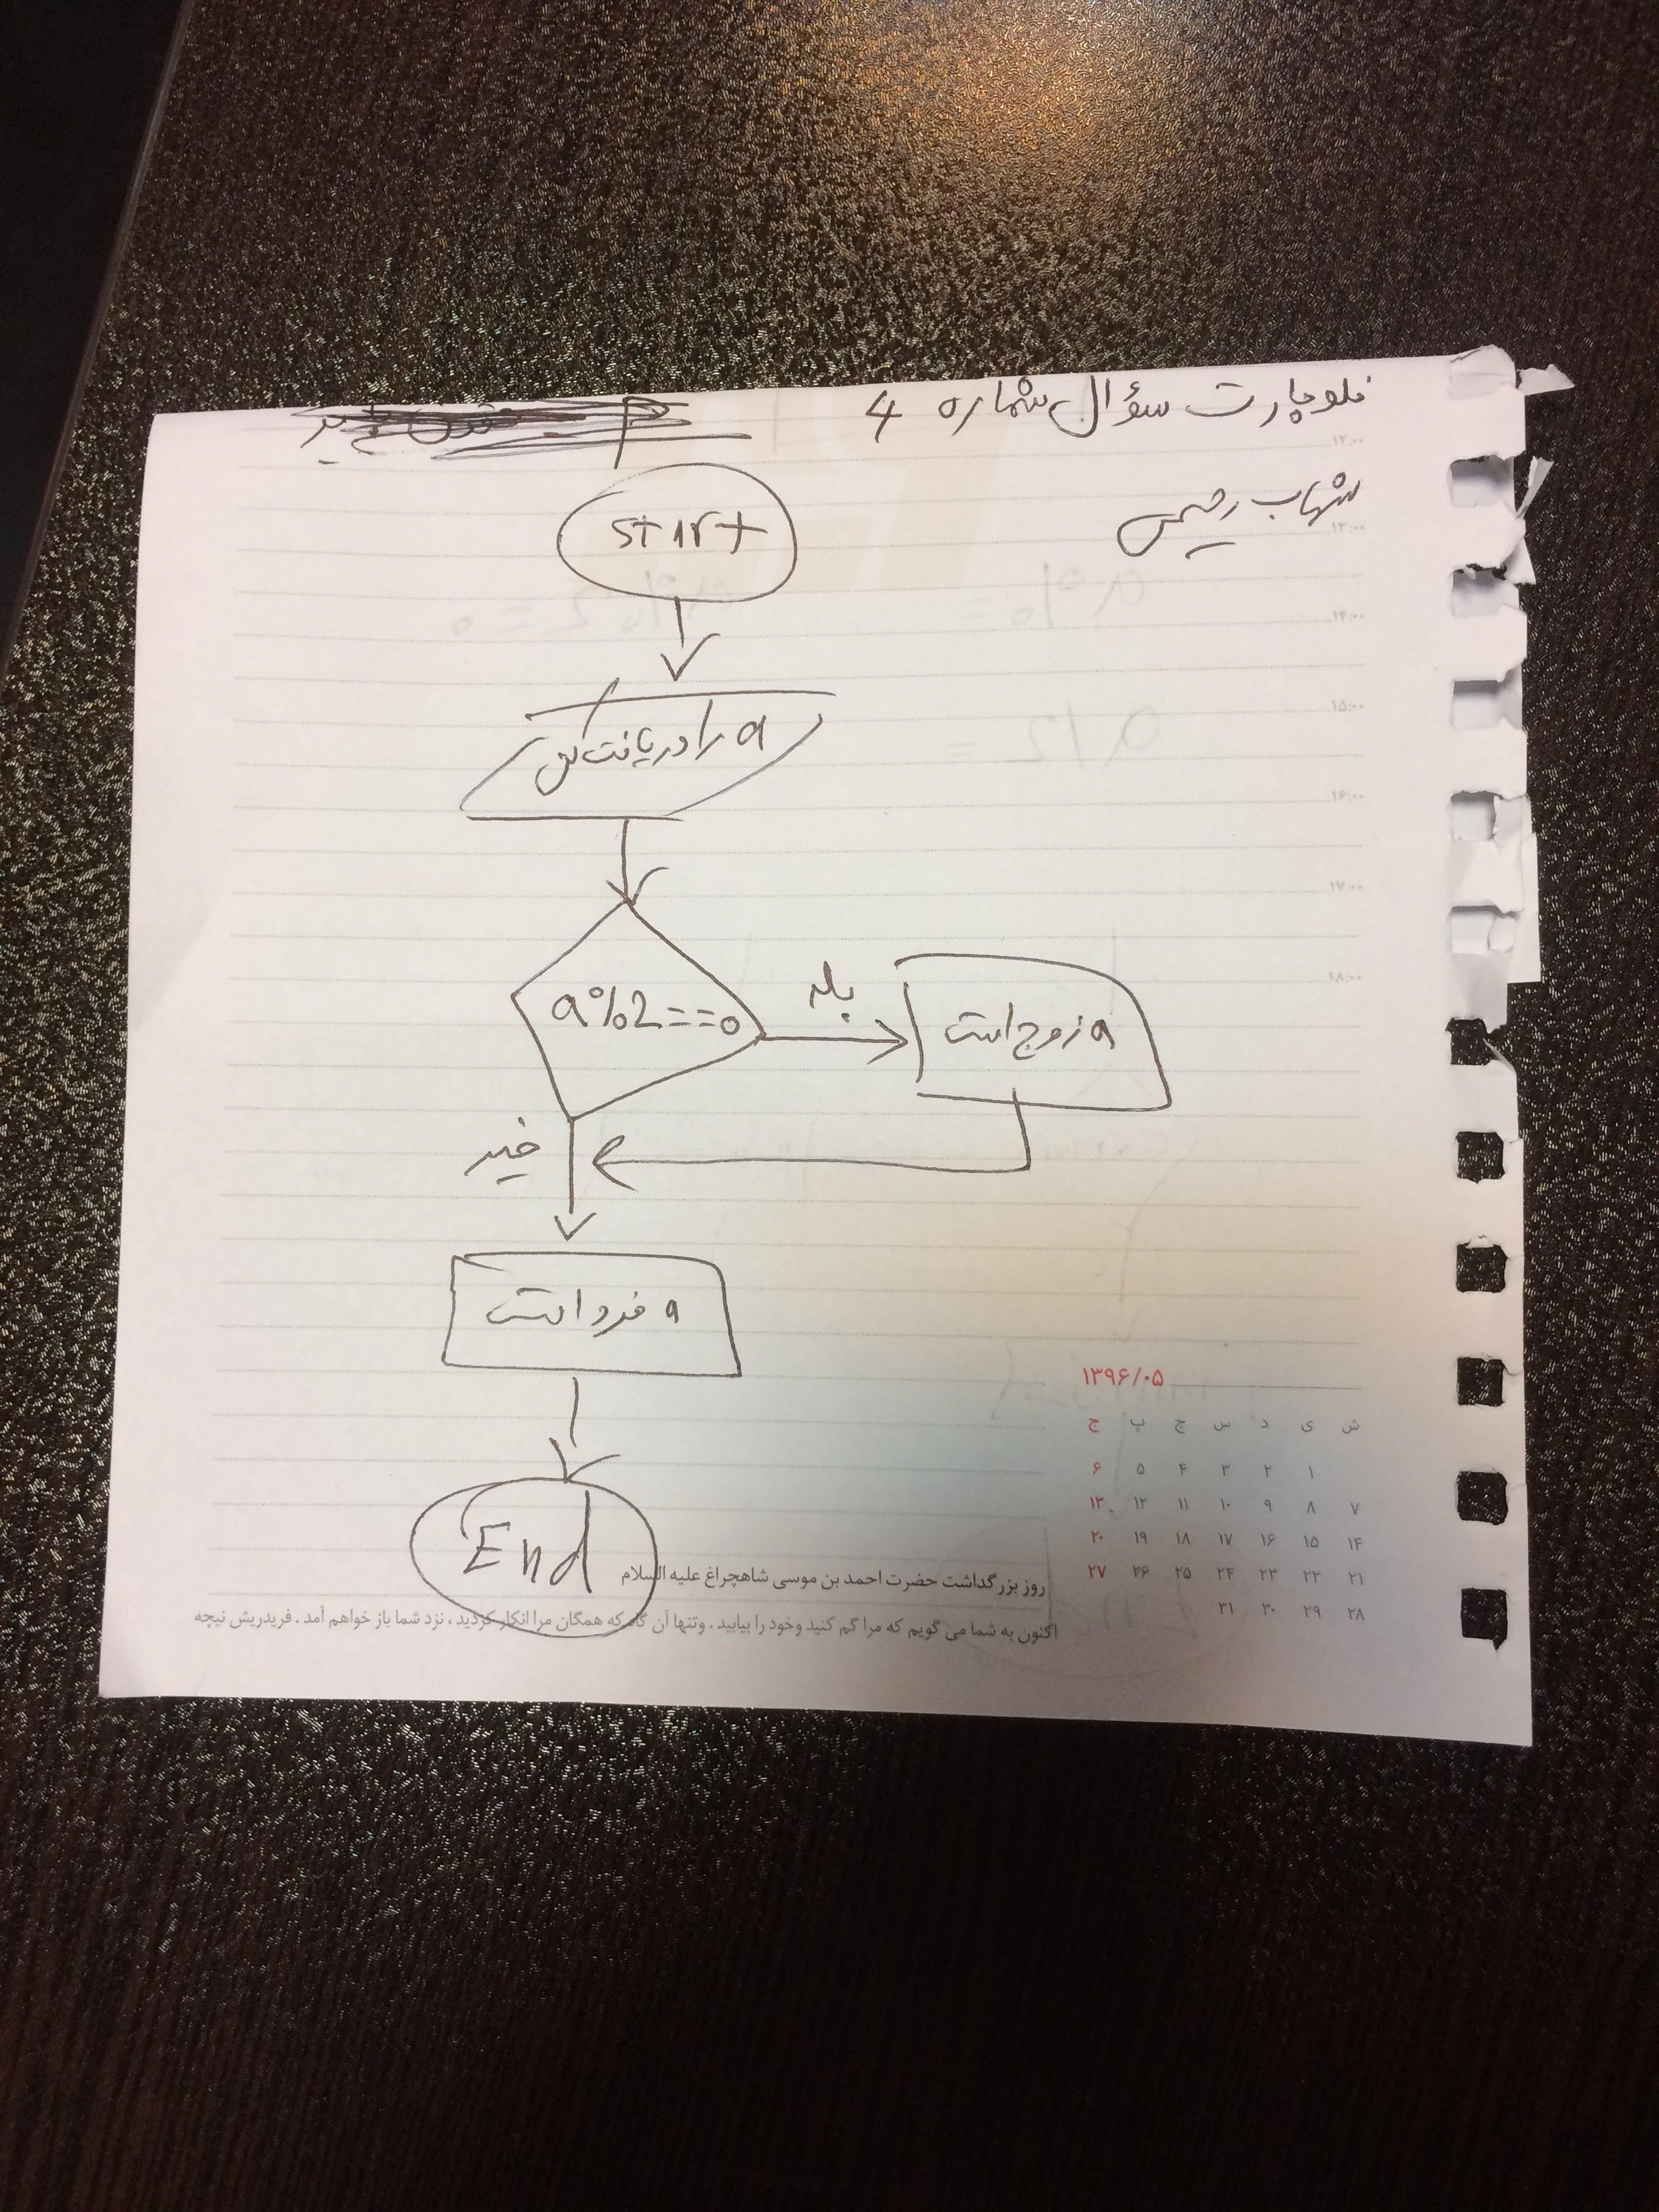 فلوچارت سؤال شماره 4
شهاب رحیمی
start
a را دریافت کن
a%2==0
بله
a زوج است
خیر
a فرد است
End
۱۲:۰۰
۱۳:۰۰
۱۴:۰۰
۱۵:۰۰
۱۶:۰۰
۱۷:۰۰
۱۸:۰۰
۱۳۹۶/۰۵
ش ی د س چ پ ج
۱ ۲ ۳ ۴ ۵ ۶
۷ ۸ ۹ ۱۰ ۱۱ ۱۲ ۱۳
۱۴ ۱۵ ۱۶ ۱۷ ۱۸ ۱۹ ۲۰
۲۱ ۲۲ ۲۳ ۲۴ ۲۵ ۲۶ ۲۷
۲۸ ۲۹ ۳۰ ۳۱
روز بزرگداشت حضرت احمد بن موسی شاهچراغ علیه السلام
اکنون به شما می گویم که مرا گم کنید وخود را بیابید . وتنها آن گاه که همگان مرا انکار کردید ، نزد شما باز خواهم آمد . فریدریش نیچه